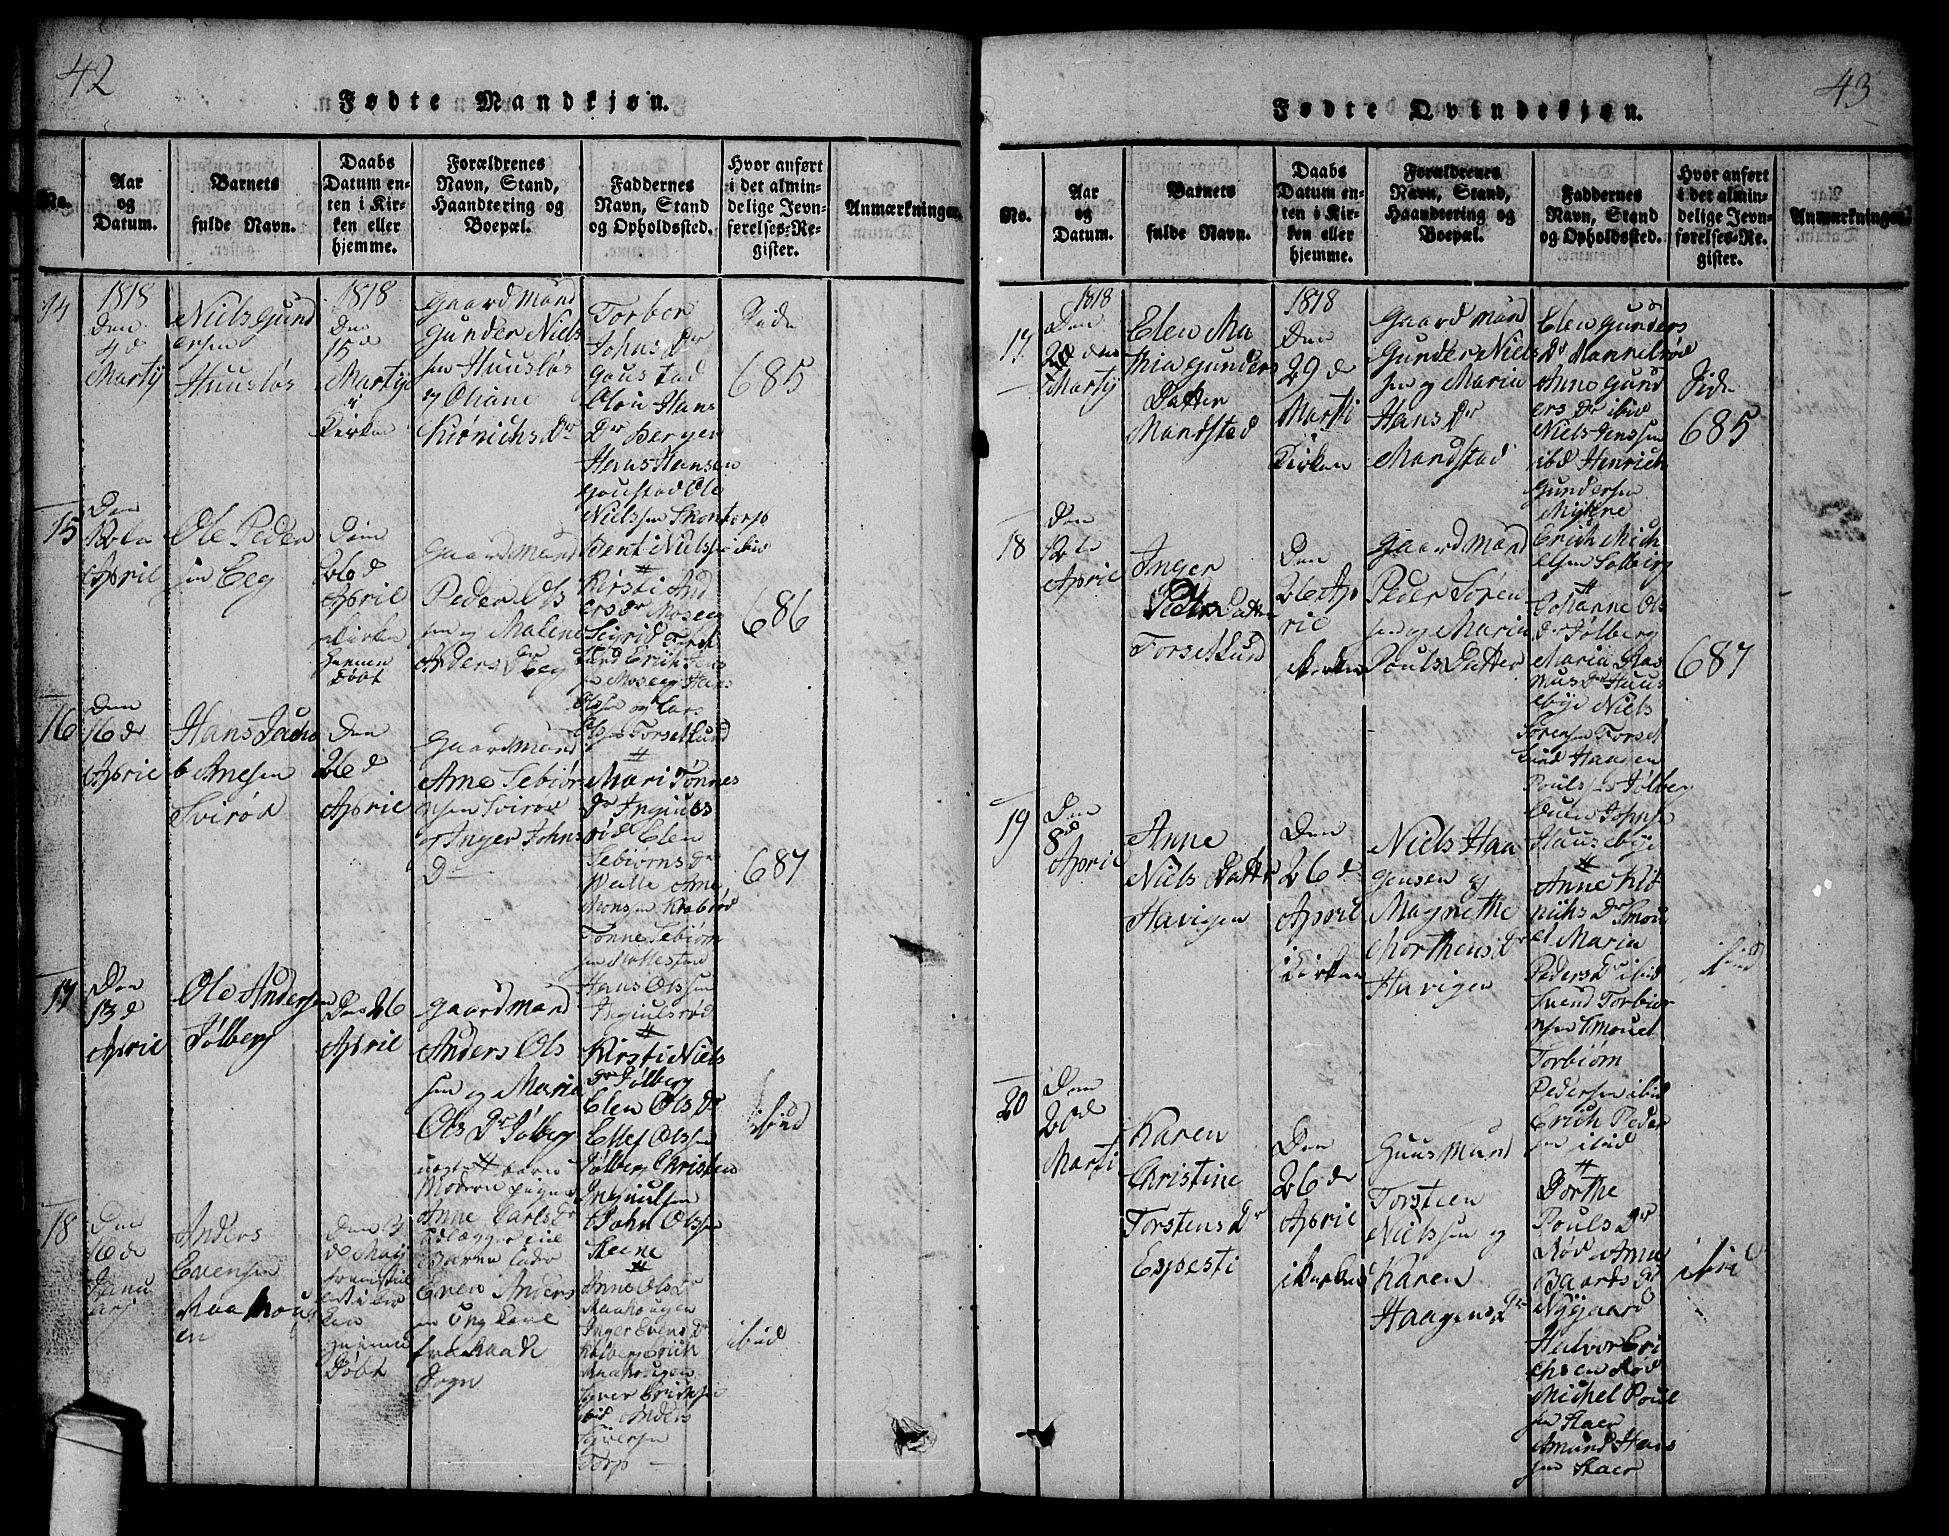 42
Fødte Mandkjøn.
No.
Aar
og
Datum.
Barnets
fulde Navn.
Daabs
Datum en-
ten i Kir-
ken eller
hjemme.
Forældrenes
Navn, Stand,
Haandtering og
Boepæl.
Faddernes
Navn, Stand
og Opholdssted.
Hvor anført
i det almin-
delige Jevn-
førelses-Re-
gister.
Anmærkninger.
14
1818
Den
4d
Martij
Niels Gund
ersen
Huusløs
1818
Den
15d
Martij
i
Kirken
Gaardmand
Gunder Niels
sen Huusløs
og Oliane
Hinrichs Dr
Torbor
Johns Dr
Goustad
Olou Hans
Dr Bergen
Hans Hansen
Goustad Ole
Nielssen Skontorp
Bent Nielssen ibid
Side
685
15
Den
12te
April
Ole Peder
sen Eeg
Den
26d
April
i Kirken
Hjemme
døbt
Gaardmand
Peder Ols
sen og Malene
Anders Dr Eeg
#
Kirsti And
ers Dr Moseeg
Sigrid Forset
lund Erich Jens
sen Moseeg Hans
Olssen og Lars
Olssen Forsetlund
686
16
Den
16de
April
Hans Jacho
b Arnesen
Svirød
Den
26d
April
Gaardmand
Arne Sebiør
nsen Svirød
og Inger Johns
Dr
#
Mari Tønnes
Dr Ingiuls
rød Elen
Sebiørns Dr
Walle Arne
Monsen Krabrød
Tønne Sebiørn
sen
Hans Olssen
Ingiulsrød
687
17
Den
13de
April
Ole Andersen
Jølberg
Den 26
April
Gaardmand
Anders Ols
sen og Maria
Ols Dr Jølberg
#
Kirsti Niels
Dr Jølberg
Elen Ols Dr
Ellef Olssen
Jølberg Christen
Ingiulsen
John Olssen
Steene
ibid
18
Den
16de
Janu
arj
Anders
Evensen
Maahoug
en
Den 3
de Maij
fremstil
let i Kir
ken
hjemme
Døbt
uægte
Moderen pigen
Anne Carls Dr
udlægger til
Barne fader
Even Anders
en Ung Karl
fra Raade
Sogn
#
Anne Ols Dr
Maahougen
Inger Evens Dr
Kolberg Erich
Maahougen
Syver Erichsen
ibid Anders
Syversen
Torp
ibid
43
Fødte Qvindekjøn.
No.
Aar
og
Datum.
Barnets
fulde Navn.
Daabs
Datum en-
ten i Kir-
ken eller
hjemme.
Forældrenes
Navn, Stand,
Haandtering og
Boepæl.
Faddernes
Navn, Stand
og Opholdssted.
Hvor anført
i det almin-
delige Jevn-
førelses-Re-
gister.
Anmærkninger.
17
1818
Den
20 den
Martij
Elen Ma
thia Gunders
Datter
Mandstad
1818
Den
29d
Marti
Kirken
Gaardmand
Gunder Niels
sen og Maria
Hans Dr
Mandstad
Elen Gunders
Dr Mannelrød
Anne Gund
ers Dr ibid
Niels Jenssen
ibd Hinrich
Gundersen
Mylene
Side
685
18
Den
12te
April
Inger
Peders Datter
Forsetlund
Den
26 Ap
ril
i Kirken
Gaardmand
Peder Søren
sen og Maria
Pouls Datter
Erich Mich
elsen Solberg
#
Johanne Ols
Dr Jølberg
Maria Ras
mus Dr Huus
ebye Niels
Sørensen Forset
lund Haagen
Poulssen Jølberg
Huusebye
687
19
Den
8d
April
Anne
Niels Datter
Havigen
Den
26de
April
i Kirken
Niels Haa
gensen og
Magnethe
Morthens Dr
Havigen
#
Anne
richs Dr Smou
et Maria
Peders Dr ibid
Svend Torbiør
nsen Smouet
Torbiørn
Pedersen ibid
Erich Peder
sen ibid
ibid
20
Den
20de
Marti
Karen
Christine
Torstens Dr
Espesti
Den
26de
April
i Kirken
Huusmand
Torsteen
Nielssen og
Karen
Haagens Dr
#
Dorthe
Pouls Dr
Rød Anne
Baards Dr
Nygaard
Halvor Eri
chsen Rød
Michel Poul
sen Skaer
Amund Hans
sen Skaer
ibid